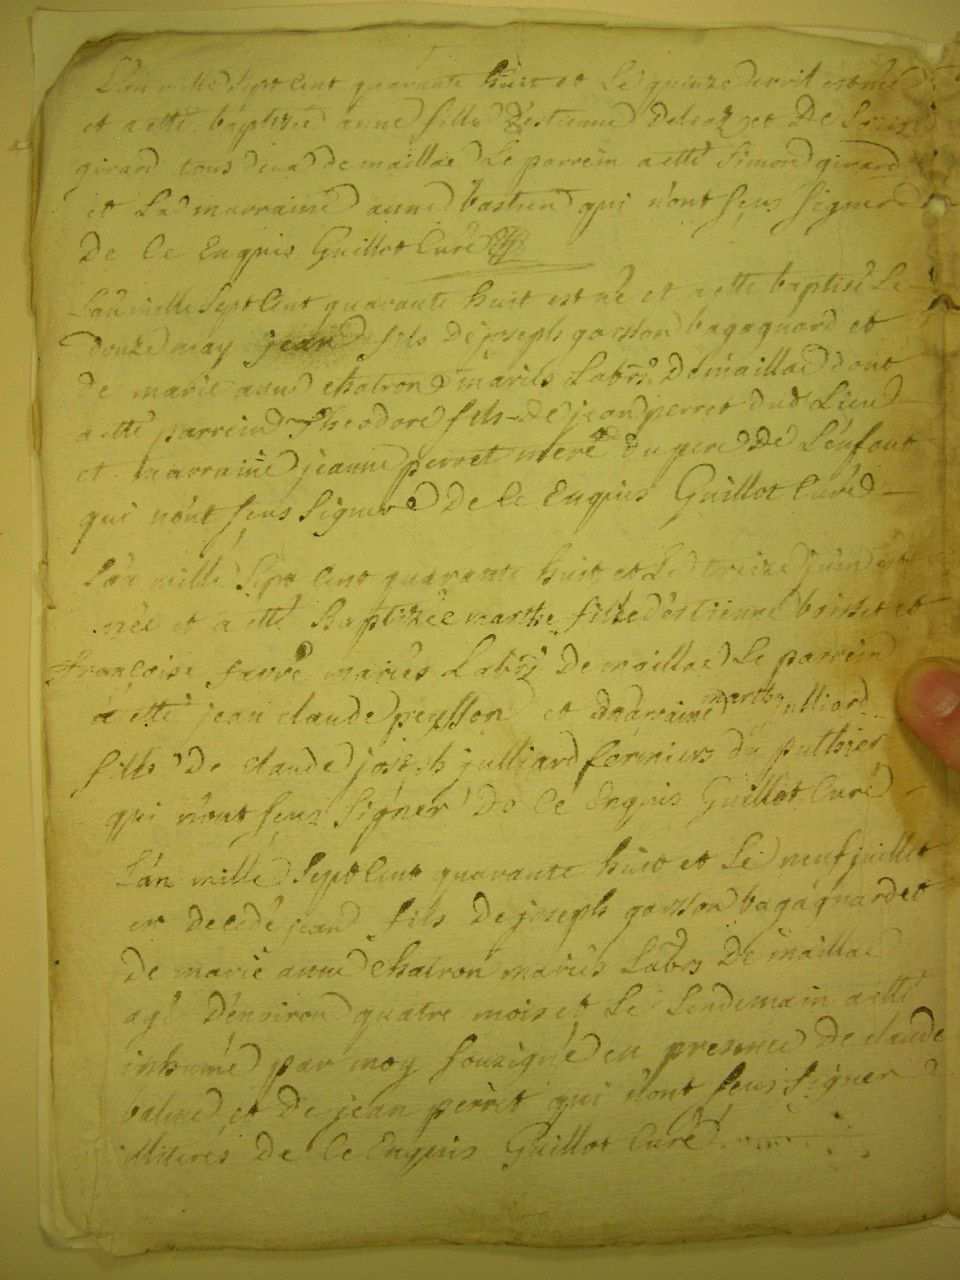 L'an mille sept cent quarante huit et le quinze avril est née
et a etté baptizée anne fille d'estienne delraz et de
girard tous deux de maillac le parrein a etté Simon girard
et la marraine anne bastien qui n'ont sçus signer
de ce enquis Guillot Curé
L'an mille sept cent quarante huit est né et a etté baptisé le
douze may jean fils de joseph gasson bagagnard et
de marie anne chatron mariés labrs de maillac dont
a etté parrein Theodore fils de jean perret dud lieu
et marraine jeanne perret mere du pere de l'enfant
qui n'ont sçus signer de ce enquis Guillot Curé
L'an mille sept cent quarante huit et le treize juin est
née et a etté Baptizée marthe fille d'estienne brisset et
françoise favre mariés labrs de maillac le parrein
a etté jean claude peysson et marraine marthe julliard
fille de claude joseph julliard fermiers du puthier
qui n'ont sçus signer de ce enquis Guillot Curé
L'an mille sept cent quarante huit et le neuf juillet
er decedé jean fils de joseph gasson bagagnard et
de marie anne chatron mariés labrs de maillac
agé d'environ quatre mois et le lendemain a etté
inhumé par moy souzigné en presence de claude
balme et de jean perret qui n'ont sçus signer
illiterés de ce enquis Guillot Curé